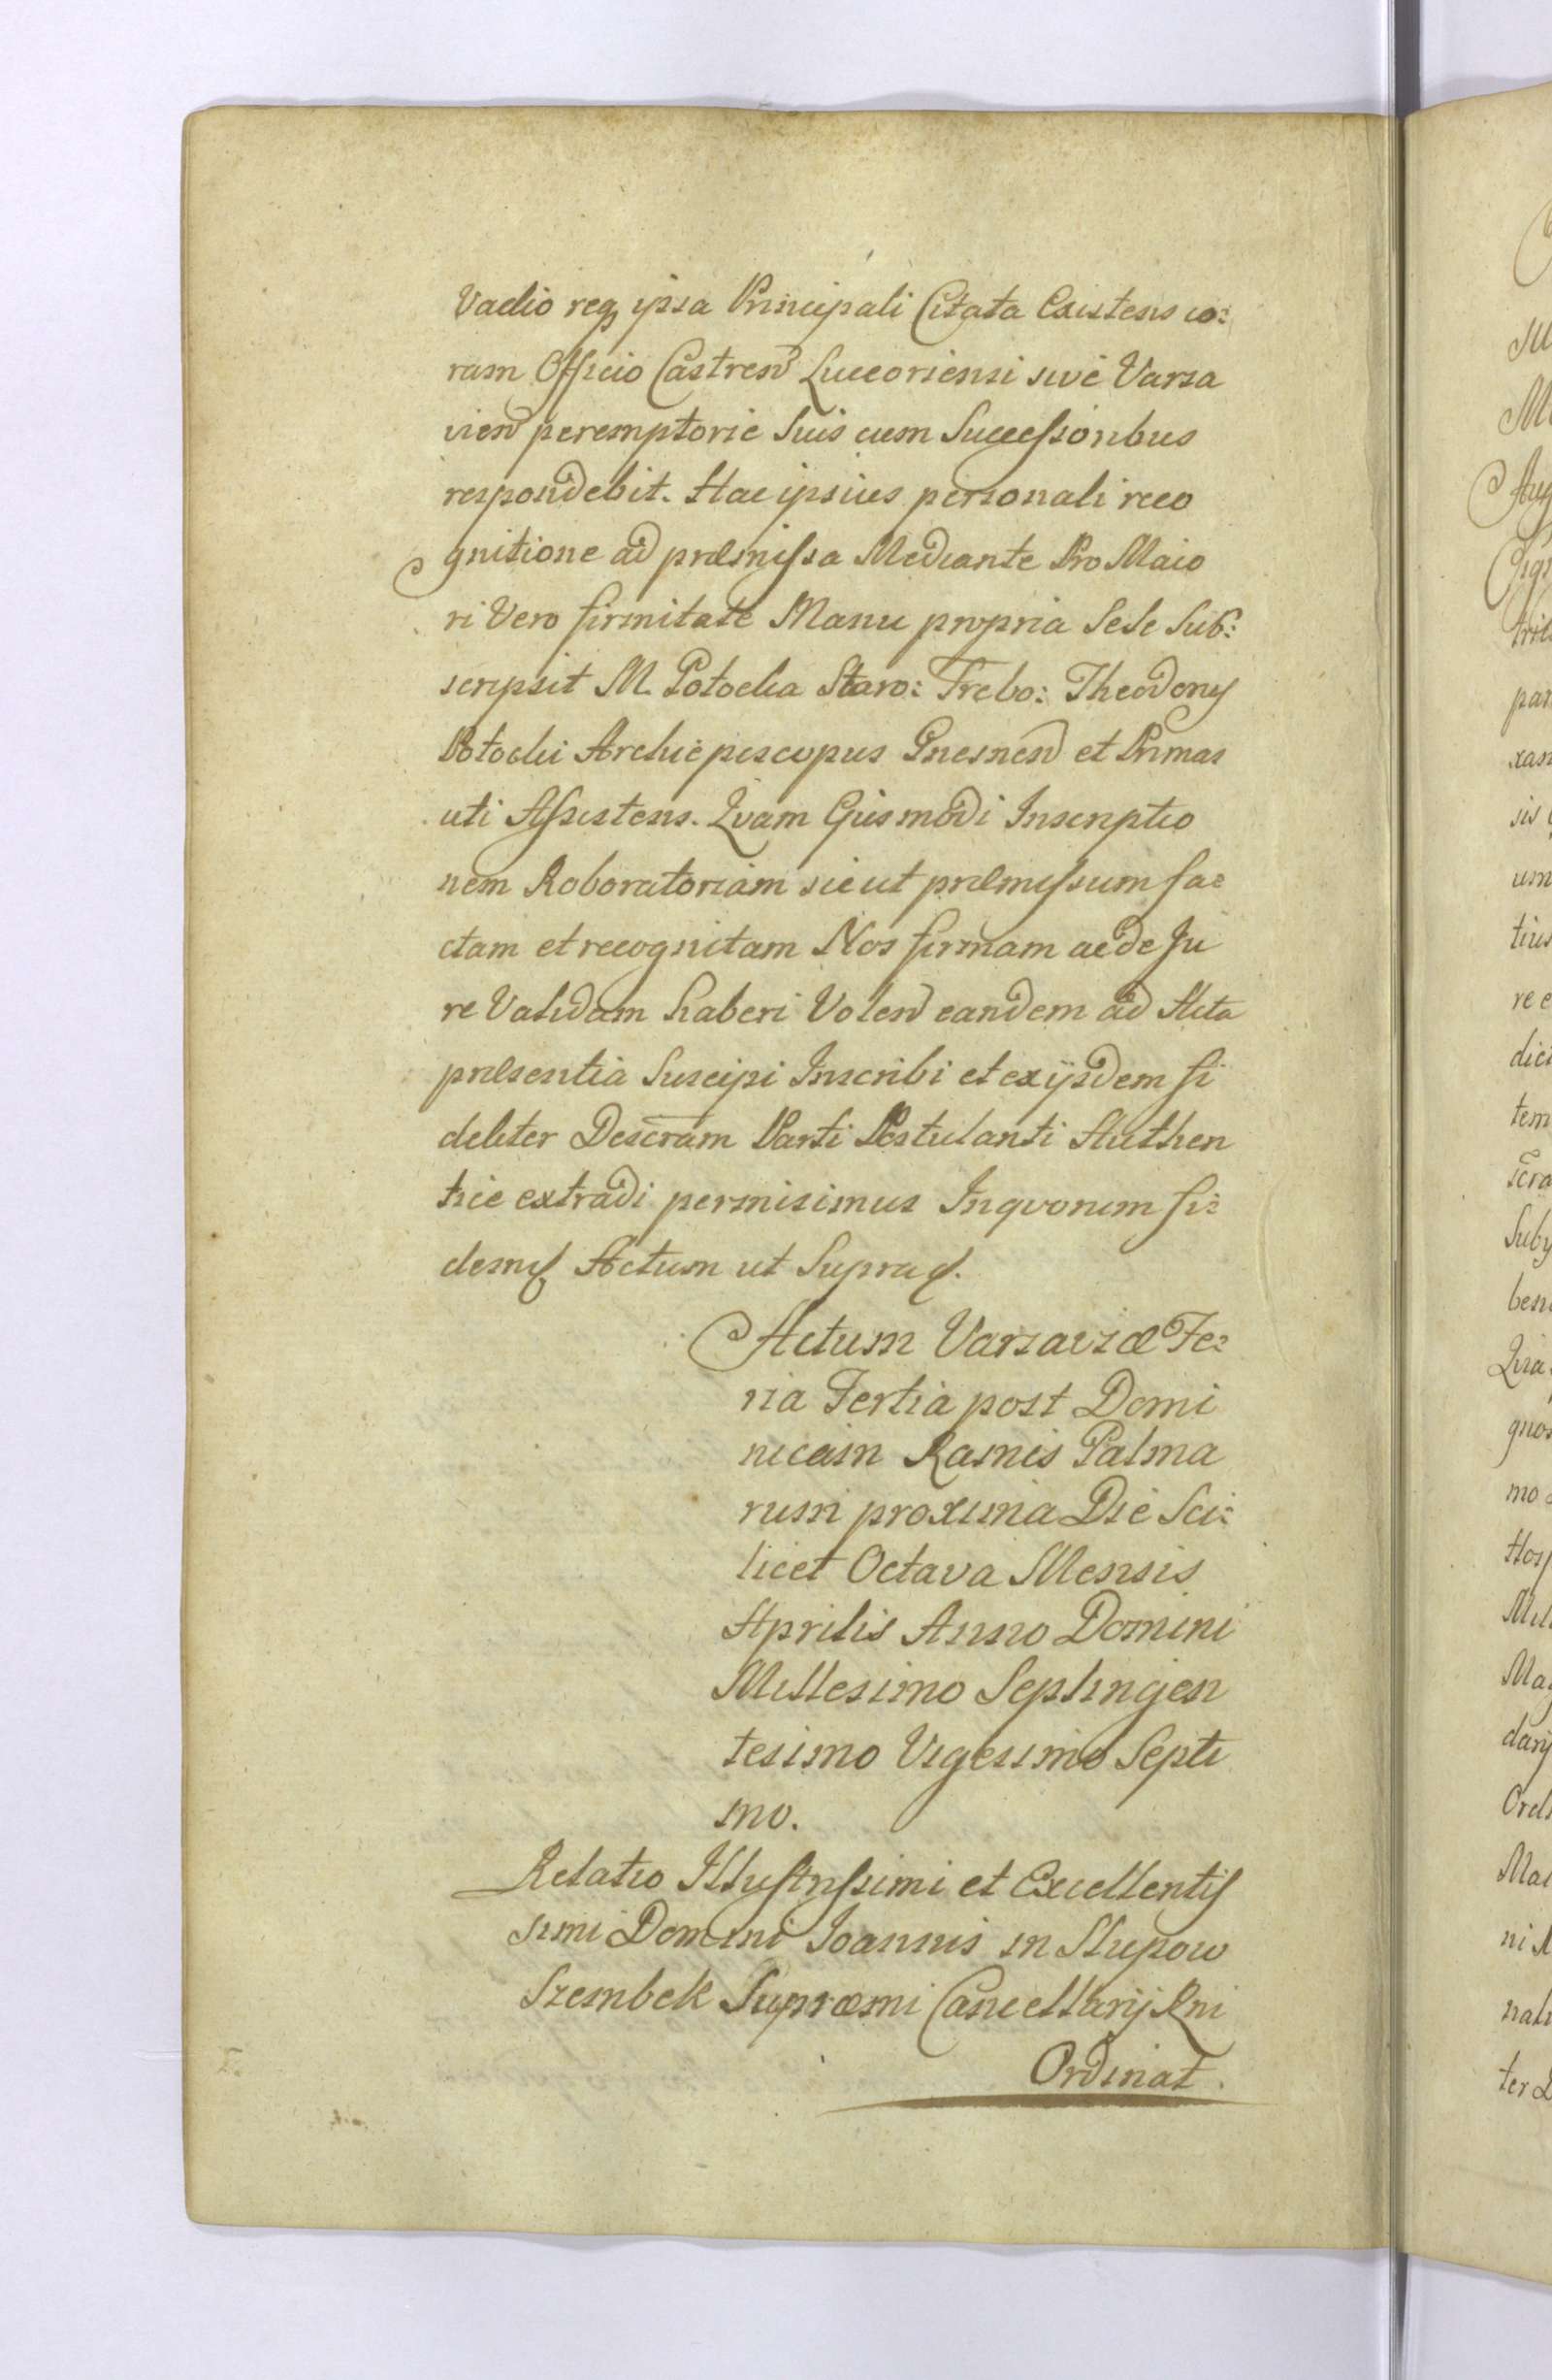 Vadio reqȝ ipsa Principali Citata Existens co:
ram Officio Castren Luceoriensi sive Varsa
vien peremptorie Suis cum Successoribus
respondebit. Hac ipsius personali reco
gnitione ad præmissa Mediante Pro Maio
ri Vero firmitate Manu propria Sese Sub:
scripsit M. Potocka Staro: Trebo: Theodorus
Potocki Archiepiscopus Gnesnen et Primas
uti Assistens. Qvam Ejusmodi Inscriptio
nem Roboratoriam sicut præmissum fa:
ctam et recognitam Nos firmam ac de Ju
re Validam haberi Volen eandem ad Acta
præsentia Suscipi Inscribi et ex ijsdem fi
deliter Descram Parti Postulanti Authen
tice extradi permisimus Inqvorum fi:
demq Actum ut Supra
Actum Varsaviæ Fe:
ria Tertia post Domi
nicam Ramis Palma
rum proxima Die Sci:
licet Octava Mensis
Aprilis Anno Domini
Millesimo Septingen
tesimo Vigesimo Septi
mo.
Relatio Illustrissimi et Excellentis
simi Domini Joannis in Slupow
Szembek Supræmi Cancellarij Rni
Ordinat.